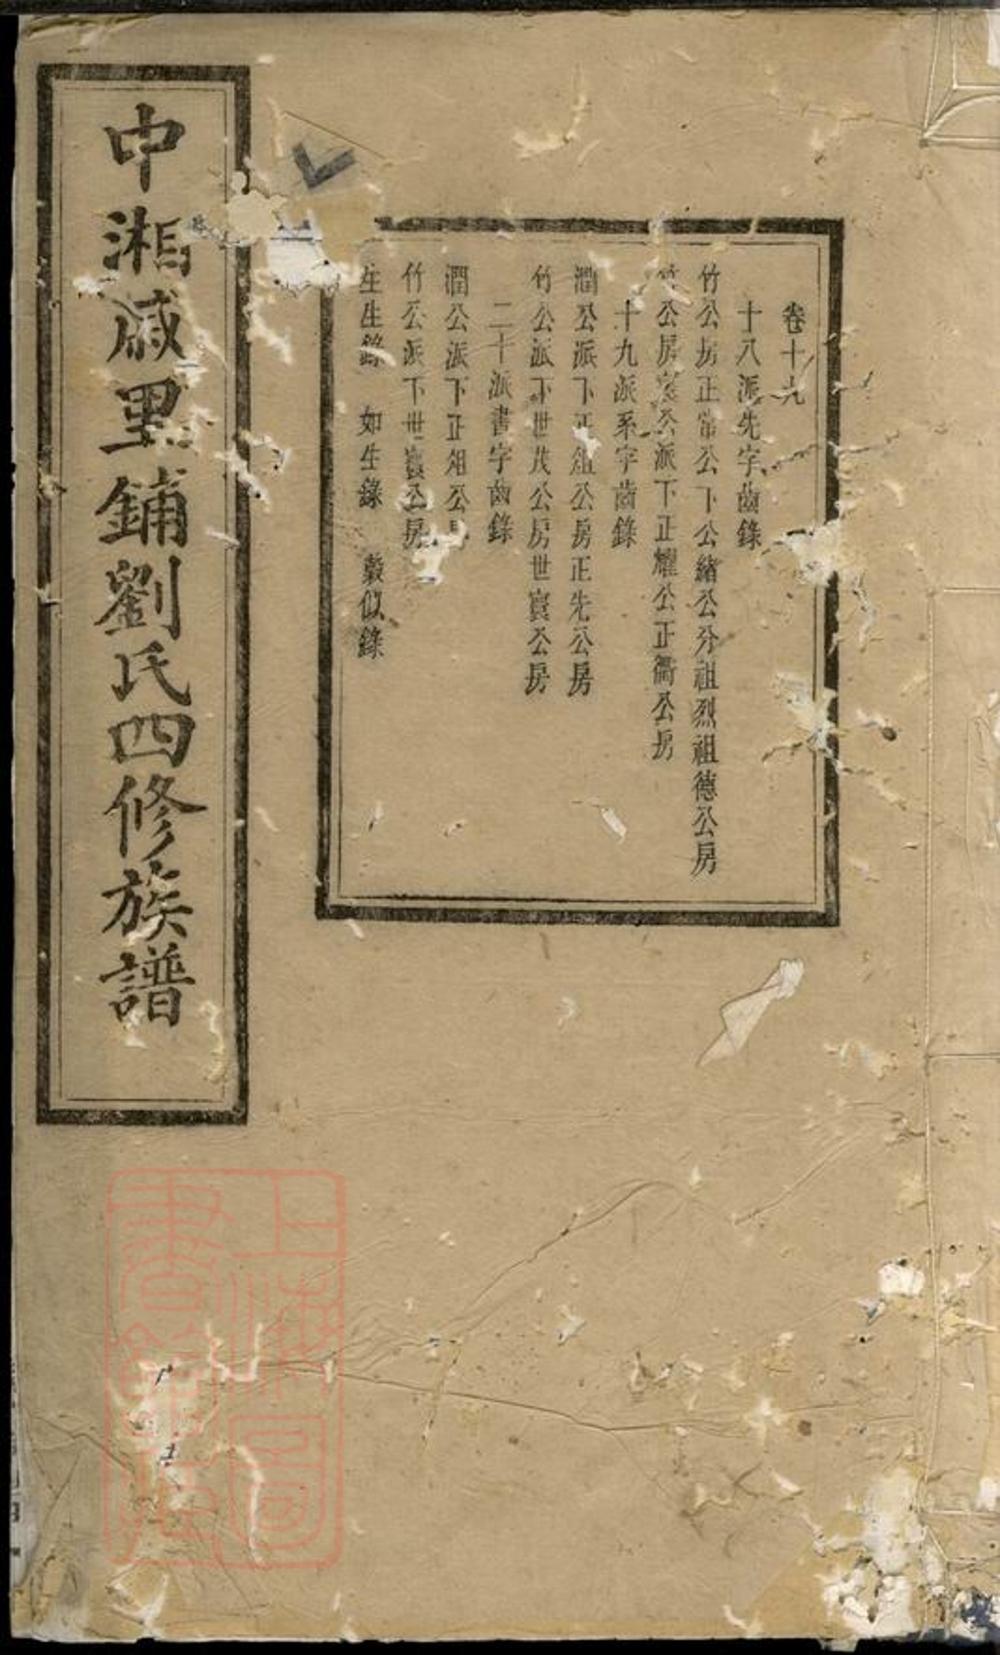 卷十九
十八派先字齒錄
竹公房正常公下公緒公分祖烈祖德公房
竹公房寰公派下正耀公正衢公房
十九派系字齒錄
潤公派下正俎公房正先公房
竹公派下世茂公房世寰公房
二十派書字齒錄
潤公派下正俎公房
竹公派下世寰公房
生生錄 如生錄 穀似錄
中湘戚里鋪劉氏四修族譜
上海圖書館藏